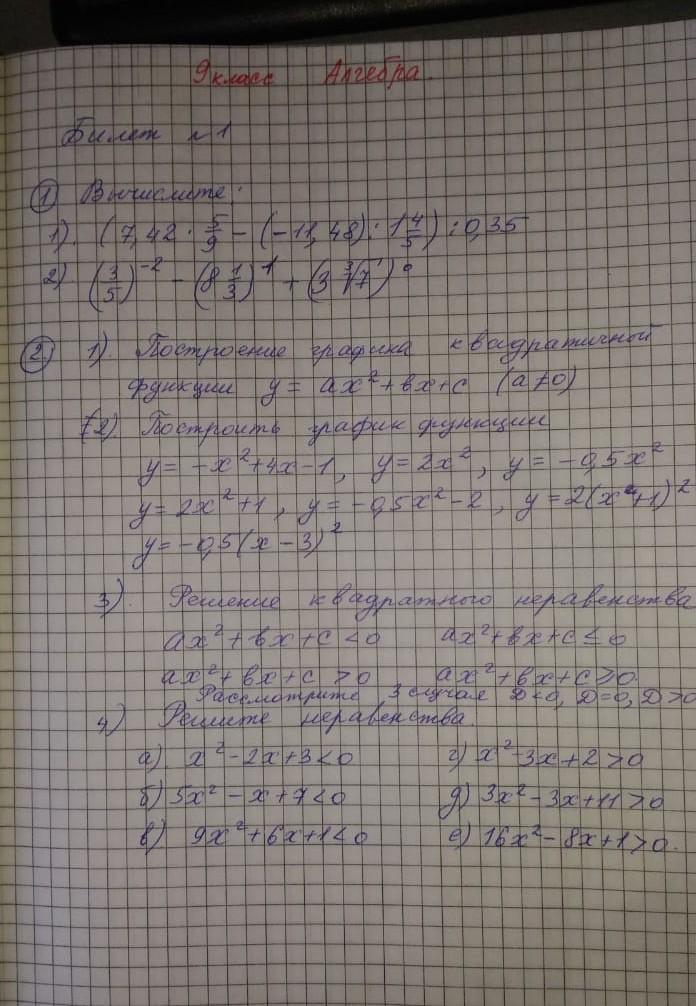 9 класс Алгебра.
Билет №1
① Вычислите:
1) (7,42 · 5/9 − (−11,48) : 1 4/5) : 0,35
2) (3/5)⁻² − (8 1/3)⁻¹ + (3 ∛7)⁰
② 1). Построение графика квадратичной
функции y = ax² + bx + c (a ≠ 0)
2) Построить график функции
y = −x² + 4x − 1, y = 2x², y = −0,5x²
y = 2x² + 1, y = −0,5x² − 2, y = 2(x + 1)²
y = −0,5(x − 3)²
3). Решение квадратного неравенства
ax² + bx + c < 0 ax² + bx + c ≤ 0
ax² + bx + c > 0 ax² + bx + c ≥ 0.
Рассмотрите 3 случая D < 0, D = 0, D > 0
4) Решите неравенства.
а). x² − 2x + 3 < 0 г) x² − 3x + 2 > 0
б) 5x² − x + 7 < 0 д) 3x² − 3x + 11 > 0
в) 9x² + 6x + 1 < 0 е) 16x² − 8x + 1 > 0.